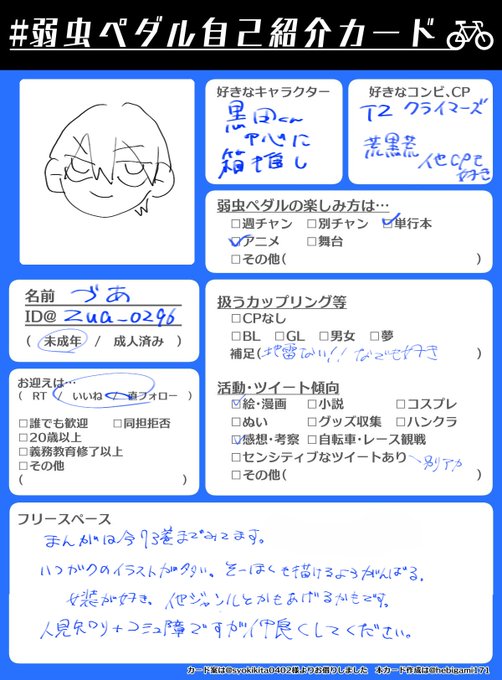 #弱虫ペダル自己紹介カード
好きなキャラクター
黒田くん
中心に
箱推し
好きなコンビ、CP
T2 クライマーズ
荒黒荒
他CPも
好き
弱虫ペダルの楽しみ方は…
□週チャン □別チャン ☑単行本
☑アニメ □舞台
□その他( )
名前 づあ
ID@ zua_0296
( 未成年 / 成人済み )
扱うカップリング等
□CPなし
□BL □GL □男女 □夢
補足(地雷ない!! なんでも好き )
お迎えは…
( RT / いいね / 直フォロー )
□誰でも歓迎 □同担拒否
□20歳以上
□義務教育修了以上
□その他
( )
活動・ツイート傾向
☑絵・漫画 □小説 □コスプレ
□ぬい □グッズ収集 □ハンクラ
☑感想・考察 □自転車・レース観戦
□センシティブなツイートあり 別アカ
□その他( )
フリースペース
まんがは今73巻までみてます。
いつがくのイラストが多い、そーほくも描けるようがんばる。
女装が好き、他ジャンルとかもあげるかもです。
人見知り+コミュ障ですが仲良くしてください。
カード案は@syokikita0402様よりお借りしました 本カード作成は@hebigami171